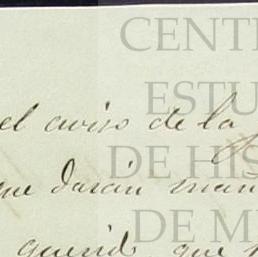 CENT
ESTU
DE HIS
DE M
el aviso de la
que darán man
querido que